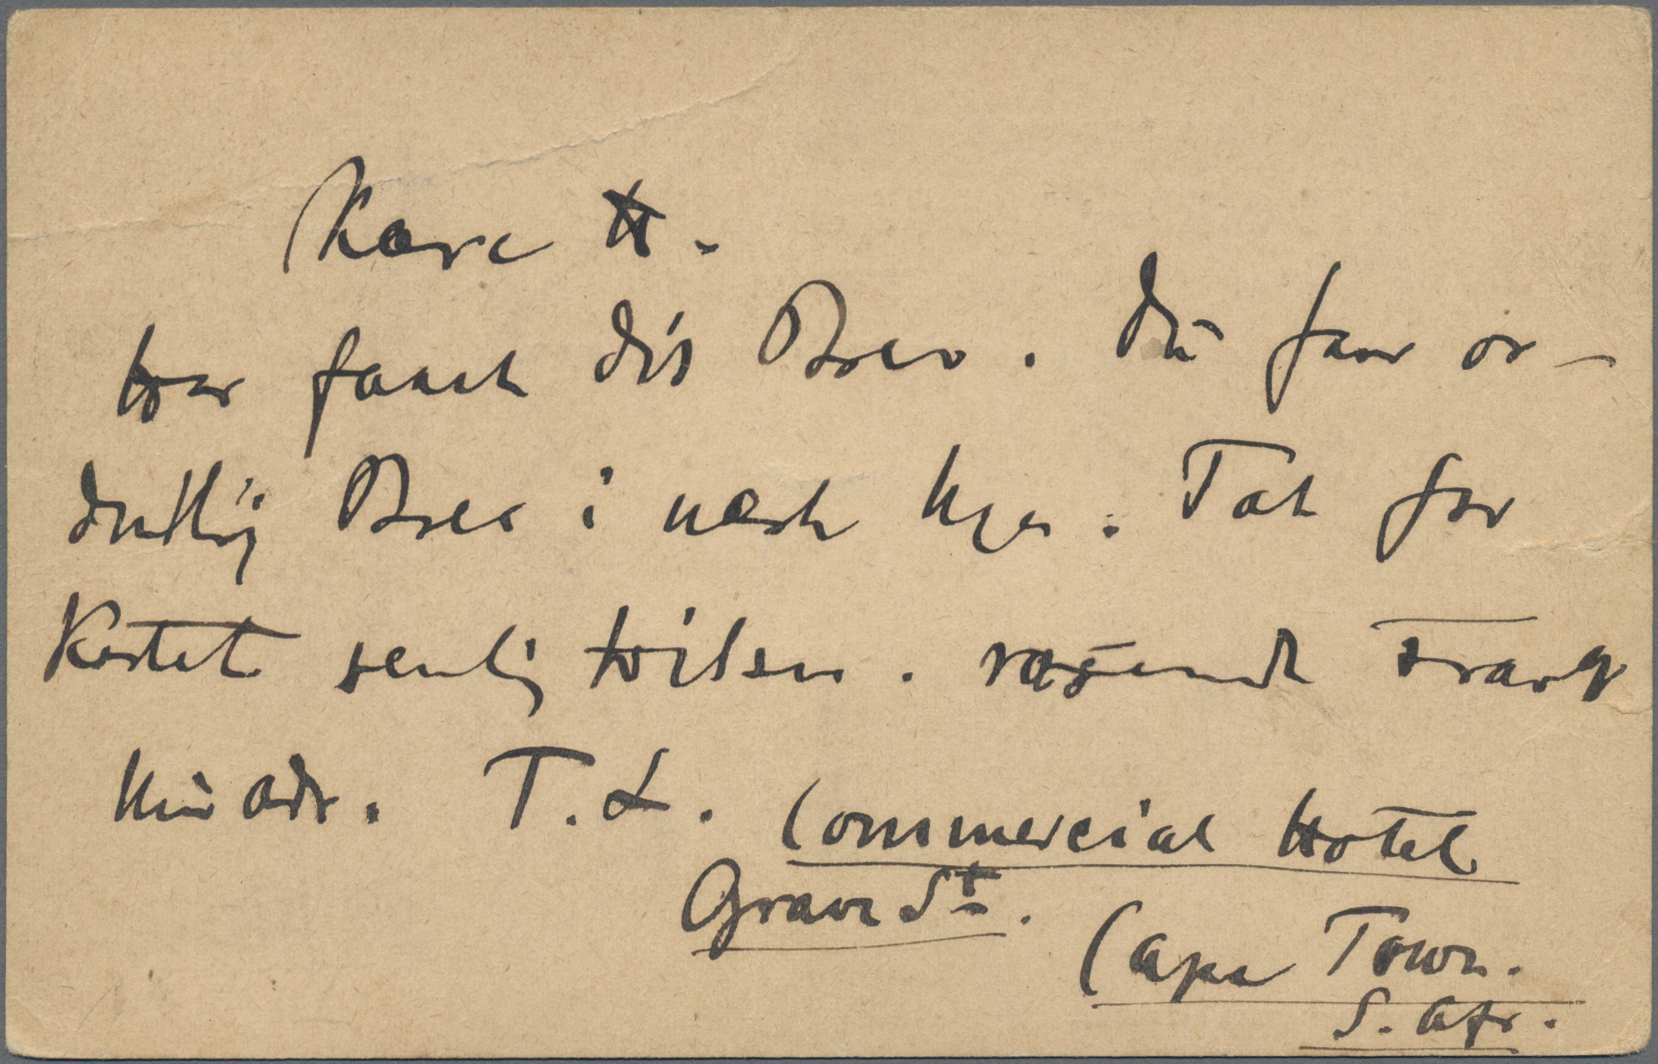 Kære H.
har faaet dit Brev. Du faar or-
dentlig Brev i næste Uge. Tak for
Kortet venlig hilsen. rasende Travl
Min Adr. T. L. Commercial Hotel
Grave St.
Cape Town.
S. Afr.